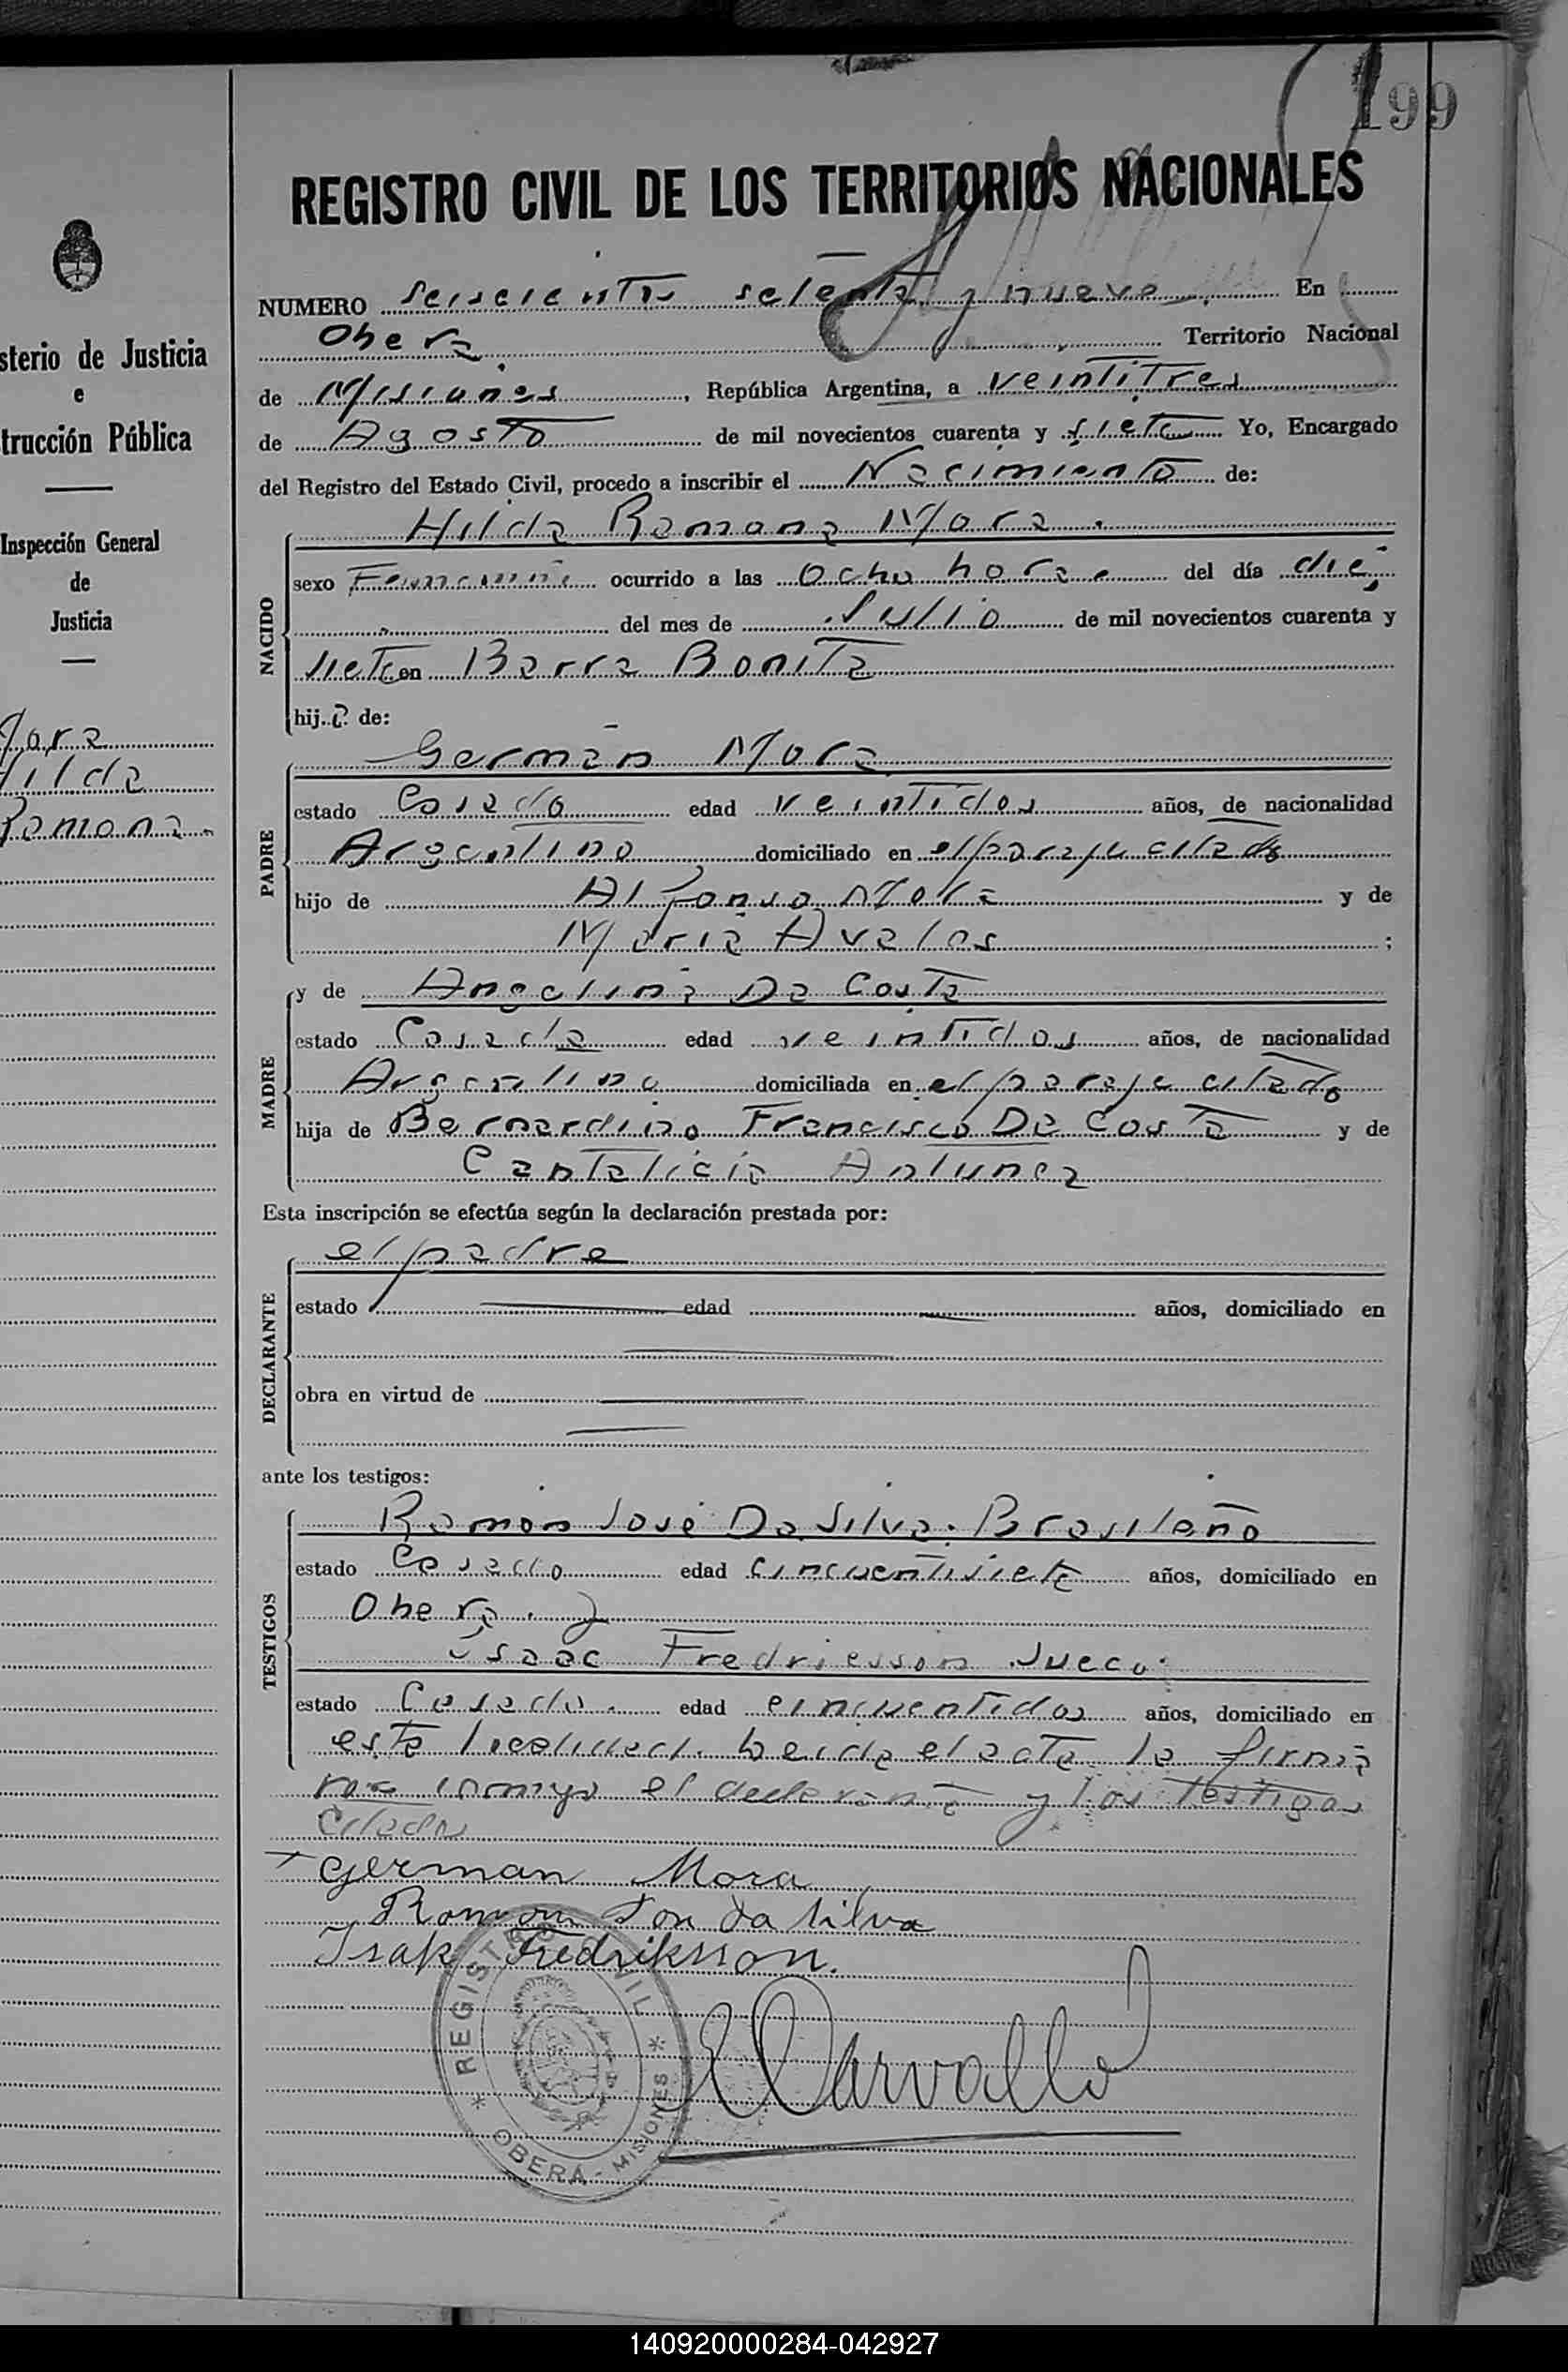 199
REGISTRO CIVIL DE LOS TERRITORIOS NACIONALES
sterio de Justicia
e
trucción Pública
Inspección General
de
Justicia
Mora
Hilda
Ramona.
NUMERO seiscientos setenta y nueve En
Oberá Territorio Nacional
de Misiones, República Argentina, a veintitres
de Agosto de mil novecientos cuarenta y siete Yo, Encargado
del Registro del Estado Civil, procedo a inscribir el Nacimiento de:
NACIDO
Hilda Ramona Mora.
sexo Femenino ocurrido a las Ocho horas del día diez
del mes de Julio de mil novecientos cuarenta y
siete en Barra Bonita
hij.a de:
PADRE
Germán Mora
estado Casado edad veintidos años, de nacionalidad
Argentino domiciliado en el paraje citado
hijo de Alfonso Mora y de
Maria Avalos ;
MADRE
y de Angelina Da Costa
estado Casada edad veintidos años, de nacionalidad
Argentina domiciliada en el paraje citado
hija de Bernardino Francisco Da Costa y de
Cantalicia Antunez
Esta inscripción se efectúa según la declaración prestada por:
DECLARANTE
el padre
estado edad años, domiciliado en
obra en virtud de
ante los testigos:
TESTIGOS
Ramón José Da Silva. Brasileño
estado Casado edad cincuentisiete años, domiciliado en
Oberá. y
Isaac Fredriesson Sueco.
estado Casado. edad cincuentidos años, domiciliado en
esta localidad. Leida el acta la firma
ron conmigo el declarante y los testigos
citados
German Mora
Ramon José da Silva
Isak Fredriksson.
REGISTRO CIVIL
* OBERÁ - MISIONES *
Carvallo
140920000284-042927